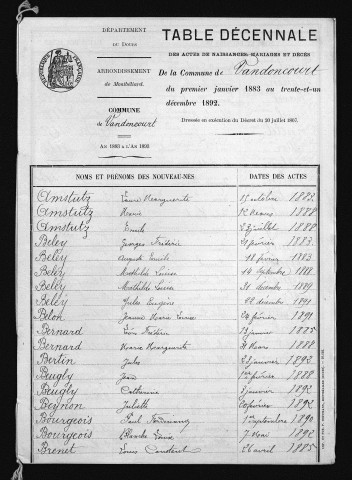 DÉPARTEMENT
DU DOUBS
ARRONDISSEMENT
de Montbéliard.
COMMUNE
de Vandoncourt
AN 1883 A L'AN 1893
TABLE DÉCENNALE
DES ACTES DE NAISSANCES-MARIAGES ET DÉCÈS
De la Commune de Vandoncourt
du premier janvier 1883 au trente-et-un
décembre 1892.
Dressée en exécution du Décret du 20 juillet 1807.
NOMS ET PRÉNOMS DES NOUVEAU-NÉS DATES DES ACTES
Amstutz Marguerite 15 octobre 1883
Amstutz mars 1888
Amstutz Emile juillet 1888
Beley Georges Frédéric février 1883
Beley Auguste Emile 18 février 1883
Beley Mathilde Louise 14 septembre 1888
Beley Mathilde Louise décembre 1889
Beley Jules Eugène décembre 1891
Belon Jeanne Marie février 1891
Bernard Frédéric janvier 1885
Bernard Marguerite Mars 1888
Bertin Jules janvier 1892
Beugly Jean février 1888
Beugly Catherine janvier 1892
Beynon Juliette février 1892
Bourgeois Paul Ferdinand septembre 1890
Bourgeois Blanche 7 Mai 1892
Brenet Louis Constant 26 avril 1885